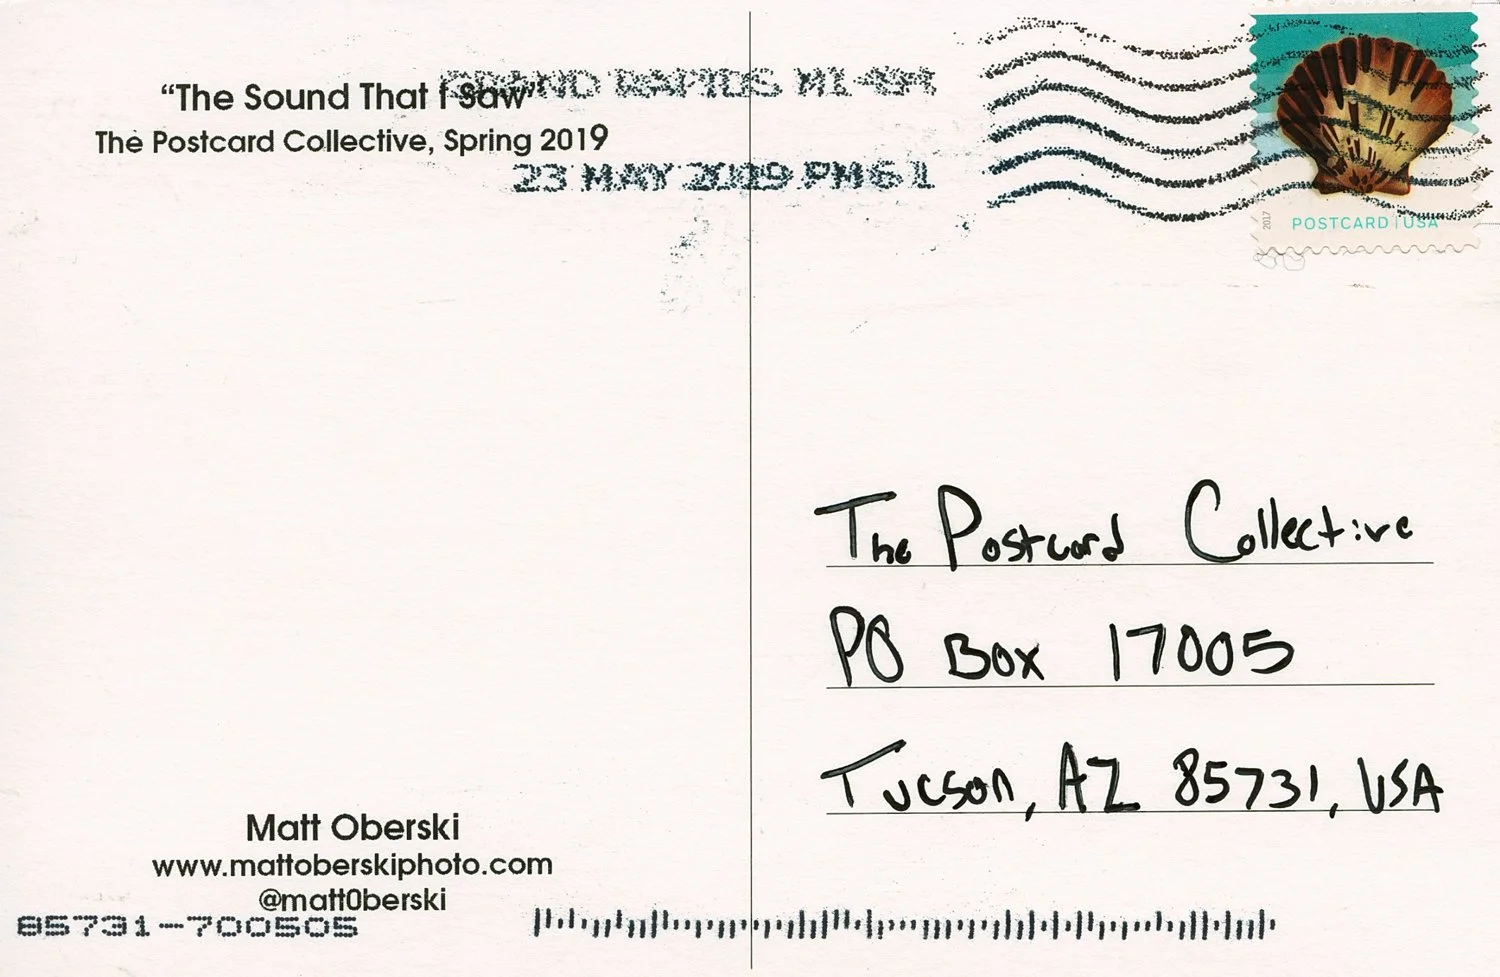 “The Sound That I Saw”
The Postcard Collective, Spring 2019
GRAND RAPIDS MI 494
23 MAY 2019 PM 6 1
2017
POSTCARD | USA
The Postcard Collective
PO Box 17005
Tucson, AZ 85731, USA
Matt Oberski
www.mattoberskiphoto.com
@matt0berski
85731-700505